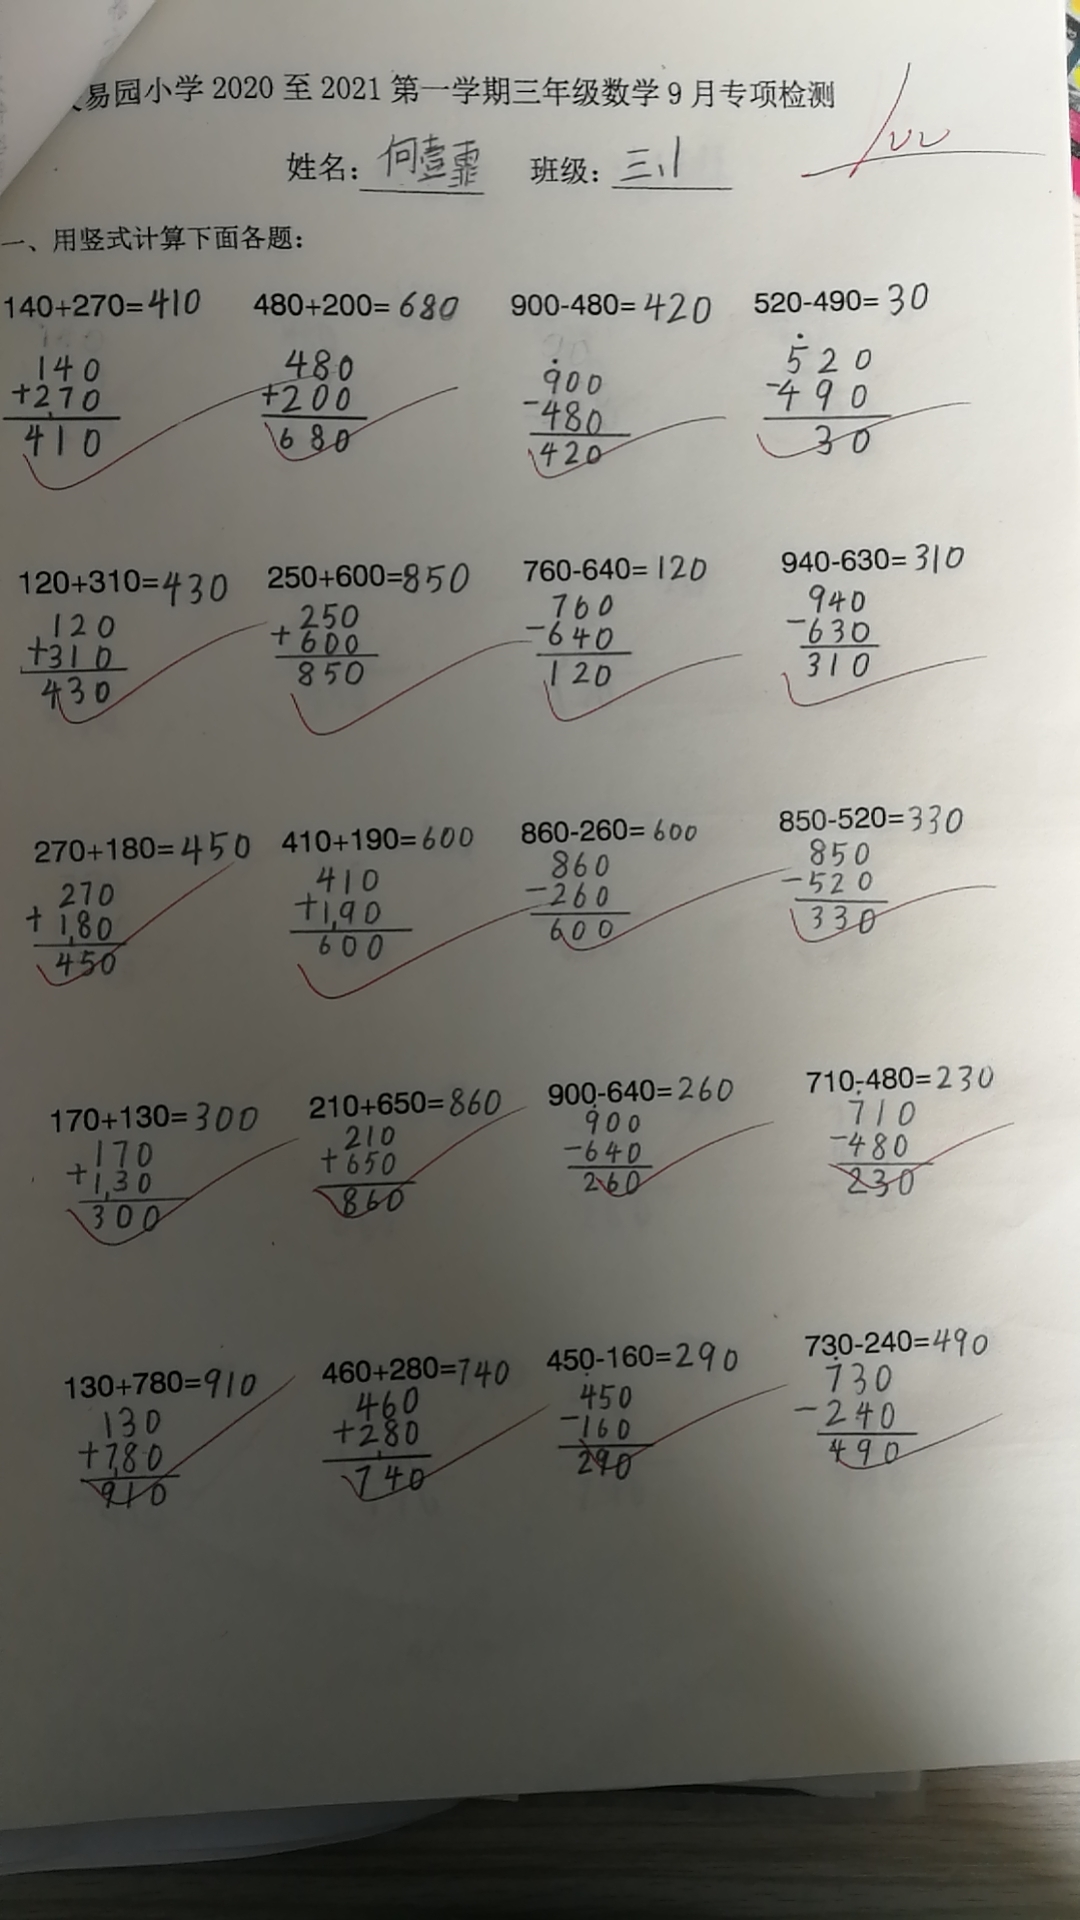 易园小学2020至2021第一学期三年级数学9月专项检测
100
姓名：何壹霏 班级：三、1
一、用竖式计算下面各题：
140+270=410 480+200=680 900-480=420 520-490=30
140 480 900 520
+270 +200 -480 -490
410 680 420 30
120+310=430 250+600=850 760-640=120 940-630=310
120 250 760 940
+310 +600 -640 -630
430 850 120 310
270+180=450 410+190=600 860-260=600 850-520=330
270 410 860 850
+180 +190 -260 -520
450 600 600 330
170+130=300 210+650=860 900-640=260 710-480=230
170 210 900 710
+130 +650 -640 -480
300 860 260 230
130+780=910 460+280=740 450-160=290 730-240=490
130 460 450 730
+780 +280 -160 -240
910 740 290 490